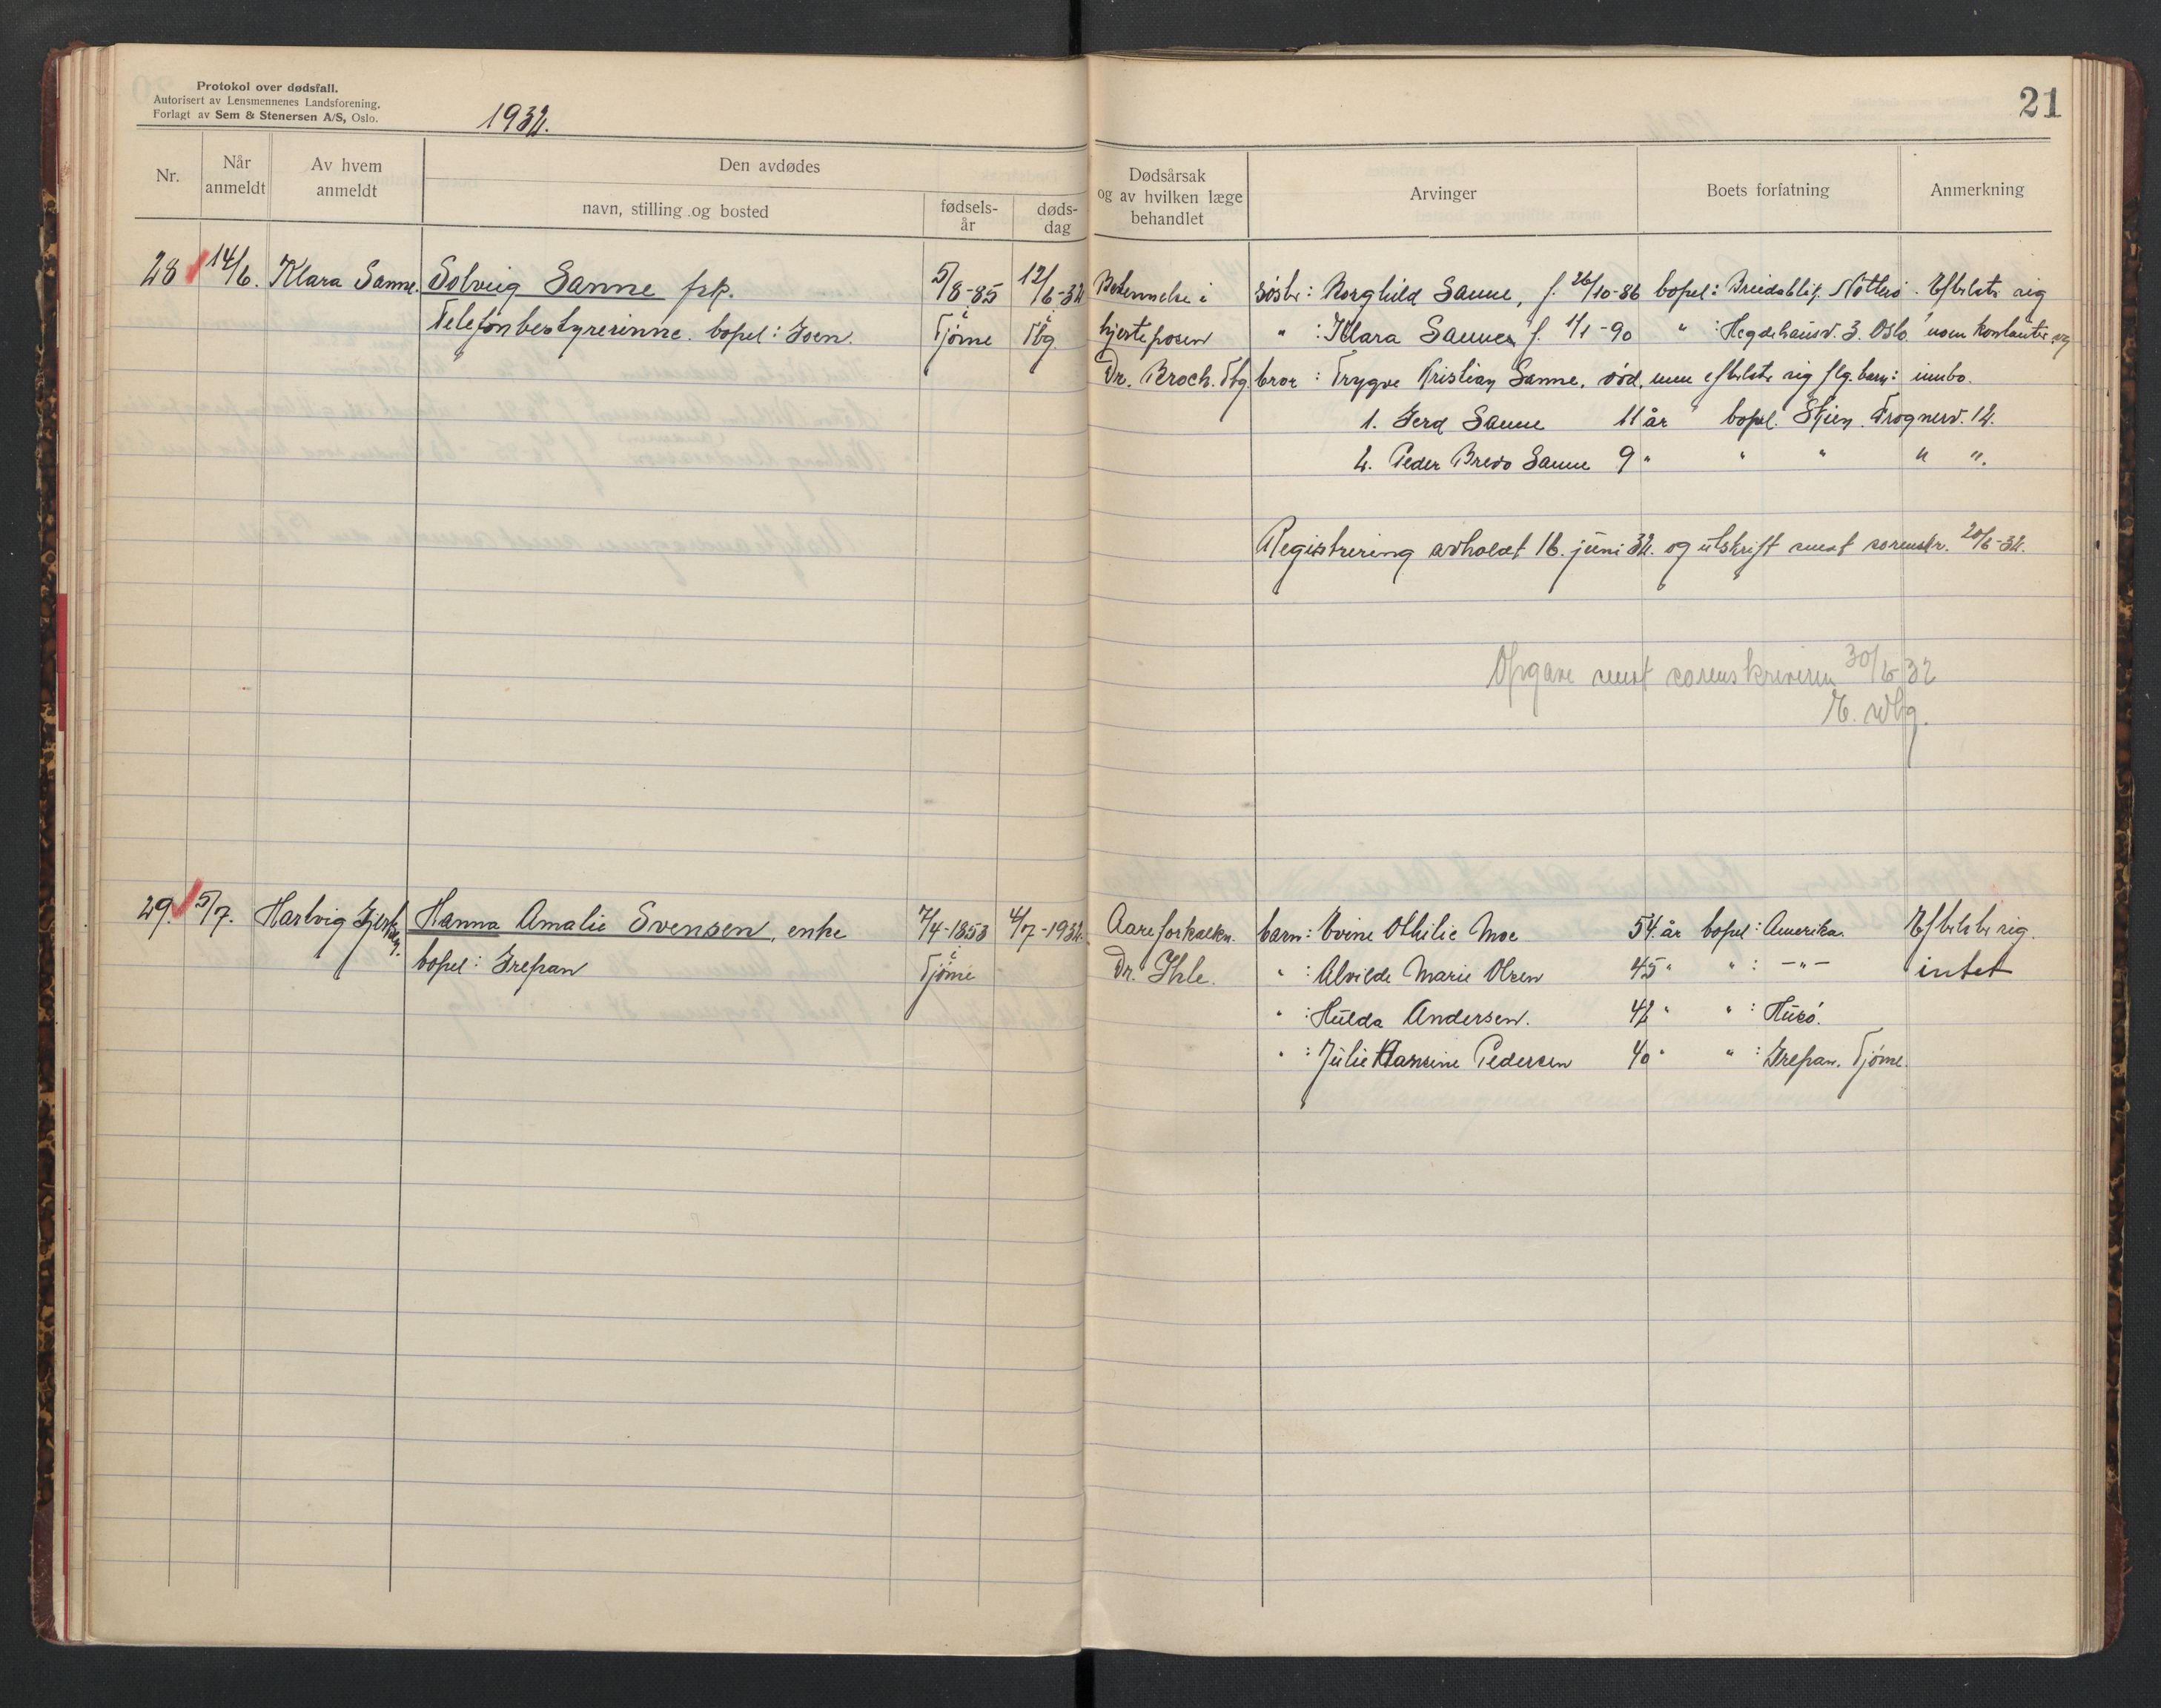 Protokol over dødsfall.
Autorisert av Lensmennenes Landsforening.
Forlagt av Sem & Stenersen A/S, Oslo.
1932.
21
Nr.
Når anmeldt
Av hvem anmeldt
Den avdødes
navn, stilling og bosted
fødsels-år
døds-dag
Dødsårsak og av hvilken læge behandlet
Arvinger
Boets forfatning
Anmerkning
28 14/6. Klara Sanne. Solveig Sanne frk. 5/8-85 12/6-32 Betennelse i søster: Borghild Sanne, f. 26/10-86 bopel: Breidablik. Nøtterø. Efterlate sig
Telefonbestyrerinne. bopel: Goen. i Tjøme i Tbg. hjerteposen " : Klara Sanne f. 1/1-90 " : Hegdehausv. 3. Oslo noen kontanter og
Dr. Broch. Tbg. bror : Trygve Kristian Sanne. død, men efterlate sig flg. barn: innbo.
1. Gerd Sanne 11 år bopel. Skien. Frognerv. 12.
2. Peder Bredo Sanne 9 " " " " ".
Registrering avholdt 16. juni 32. og utskrift sendt sorenskr. 20/6-32.
Opgave sendt sorenskriveren 30/6 32
29. 5/7. Hartvig Hanna Amalie Svensen, enke 7/4-1853 4/7-1932. Aareforkalkn. barn: Evine Othilie Moe 54 år bopel: Amerika. Efterlate sig
bopel: Grepan i Tjøme Dr. Ihle. " : Alvilde Marie Olsen 45 " " : -"- intet
" : Hulda Andersen. 42 " " : Husø.
" : Julie Hansine Pedersen 40 " " : Grepan. Tjøme.